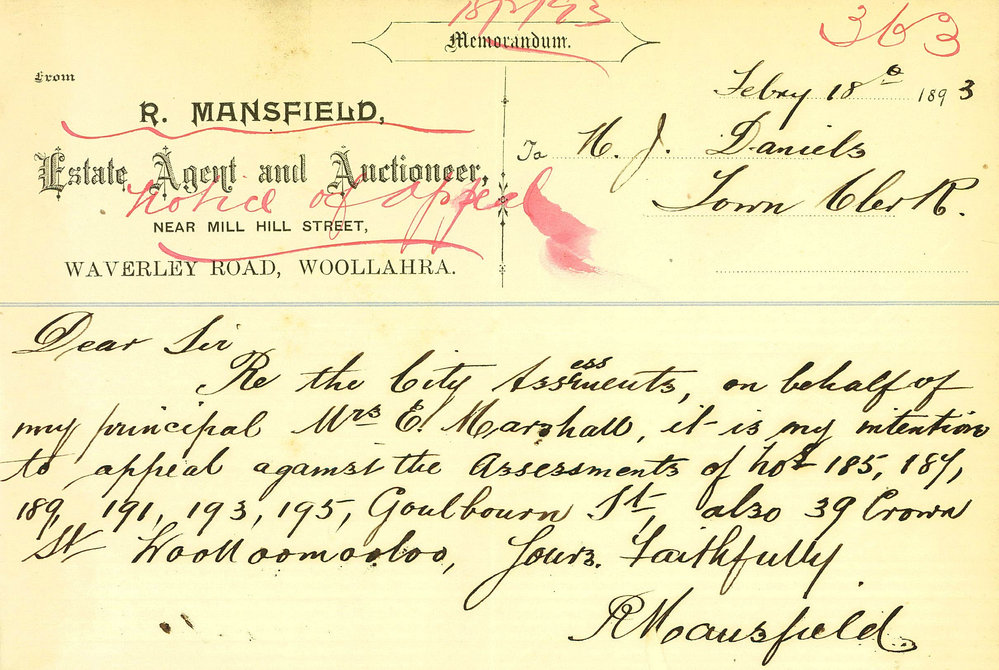 18/2/93
Memorandum.
363
From
Febry 18th 1893
R. MANSFIELD,
To H. J. Daniels
Estate Agent and Auctioneer,
Town Clerk.
Notice of Appeal
NEAR MILL HILL STREET,
WAVERLEY ROAD, WOOLLAHRA.
Dear Sir
Re the City Assessments, on behalf of
my principal Mrs E. Marshall, it is my intention
to appeal against the Assessments of Nos 185, 187,
189, 191, 193, 195, Goulbourn St, also 39 Crown
St Woolloomooloo, Yours. Faithfully
R Mansfield